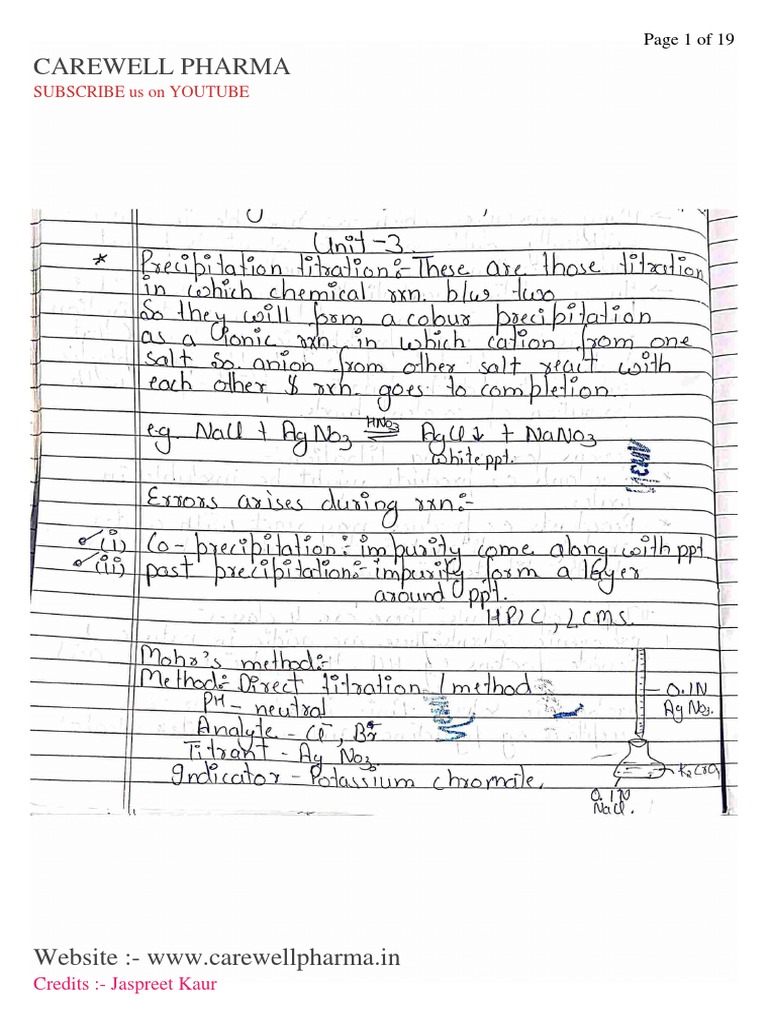 Page 1 of 19
CAREWELL PHARMA
SUBSCRIBE us on YOUTUBE
Unit-3
* Precipitation titration:- These are those titration
in which chemical rxn. b/w two
So they will form a colour precipitation
as a ionic rxn. in which cation from one
salt so anion from other salt react with
each other & rxn. goes to completion.
e.g. NaCl + AgNO3 ⇌ HNO3 AgCl↓ + NaNO3
white ppt.
Errors arises during rxn:-
(i) Co-precipitation: impurity come along with ppt
(ii) past precipitation:- impurity form a layer
around ppt.
HPLC, LCMS.
Mohr's method:-
Method:- Direct titration / method
PH - neutral
Analyte - Cl⁻, Br⁻
Titrant - AgNO3
Indicator - Potassium chromate.
0.1N
AgNO3.
K2CrO4
0.1N
NaCl.
Website :- www.carewellpharma.in
Credits :- Jaspreet Kaur